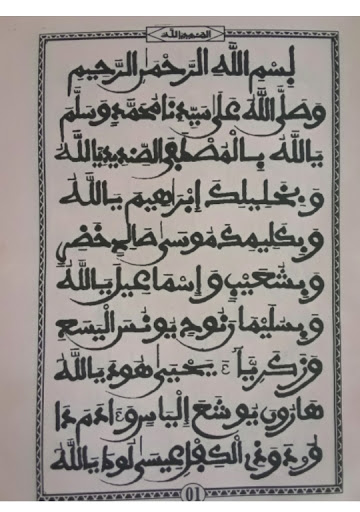 بِسْمِ اللَّهِ الرَّحْمَٰنِ الرَّحِيمِ
وَصَلَّى اللَّهُ عَلَى سَيِّدِنَا مُحَمَّدٍ وَسَلَّمَ
يَا اللَّهُ بِالْمُصْطَفَى يَا اللَّهُ
وَبِخَلِيلِكَ إِبْرَاهِيمَ يَا اللَّهُ
وَبِكَلِيمِكَ مُوسَى صَالِحِ خَضِرِ
وَبِشُعَيْبٍ وَإِسْمَاعِيلَ يَا اللَّهُ
وَبِسُلَيْمَانَ نُوحٍ يُونُسَ الْيَسَعِ
وَزَكَرِيَّاءَ يَحْيَى هُودَ يَا اللَّهُ
هَارُونَ يُوشَعَ إِلْيَاسَ وَءَادَمَ دَا
وُدَ وَذِي الْكِفْلِ عِيسَى لُوطَ يَا اللَّهُ
01